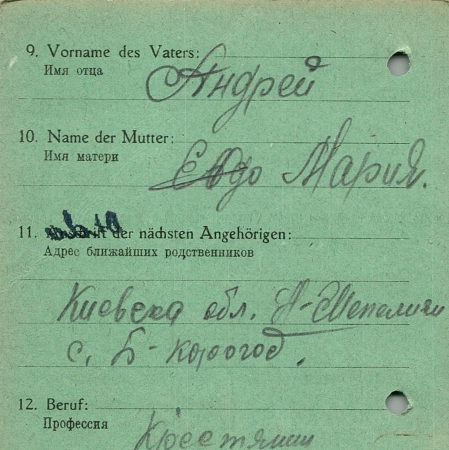 9. Vorname des Vaters:
Имя отца
Андрей
10. Name der Mutter:
Имя матери
Мария.
11. Anschrift der nächsten Angehörigen:
Адрес ближайших родственников
Киевска обл.
с. Б-Корогод.
12. Beruf:
Профессия
Крестянин